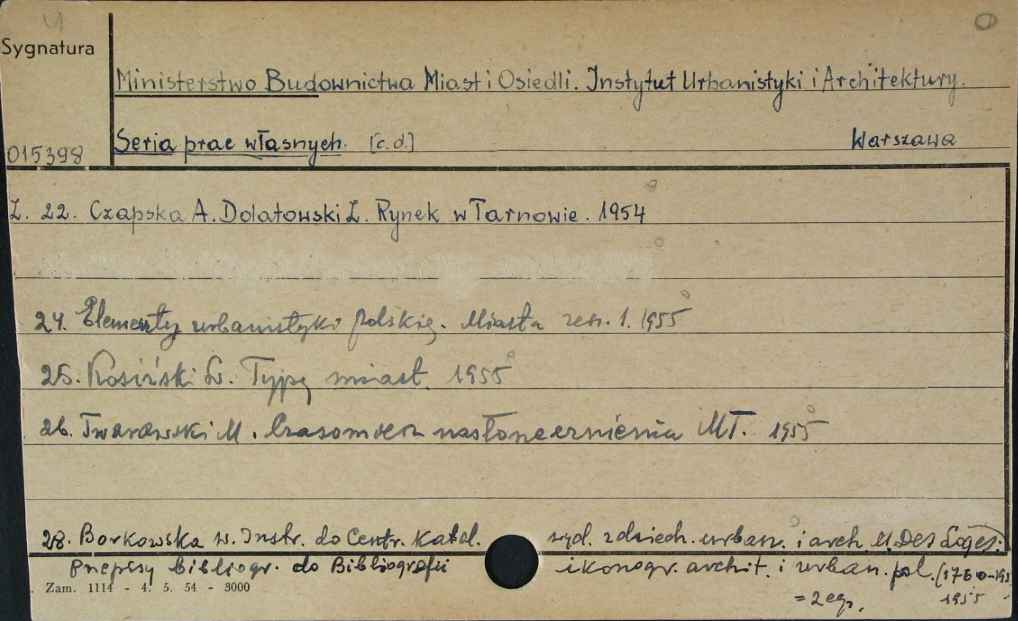 Sygnatura
Ministerstwo Budownictwa Miast i Osiedli. Instytut Urbanistyki i Architektury.
015398
Seria prac własnych. [c.d.] Warszawa
Z. 22. Czapska A. Dolatowski Z. Rynek w Tarnowie. 1954
24. Elementy urbanistyki polskiej. Miasta zesz. 1. 1955
25. Kosiński L. Typy miast 1955
26. Twarowski M. nasłonecznienia MT. 1955
28. Borkowska W. Instr. do Centr. Katal. wyd. z dziedz. urban. i arch.
przepisy bibliogr. do Bibliografii ikonogr. archit. i urban. pol.
Zam. 1114 - 4. 5. 54 - 3000
= 2 egz. 1955